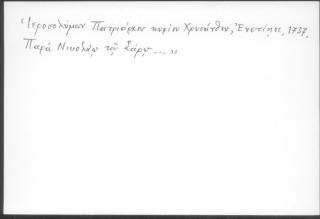 Ἱεροσολύμων Πατριάρχου κυρίου Χρυσάνθου, Ἐνετίησι, 1737,
Παρὰ Νικολάῳ τῷ Σάρῳ ... »